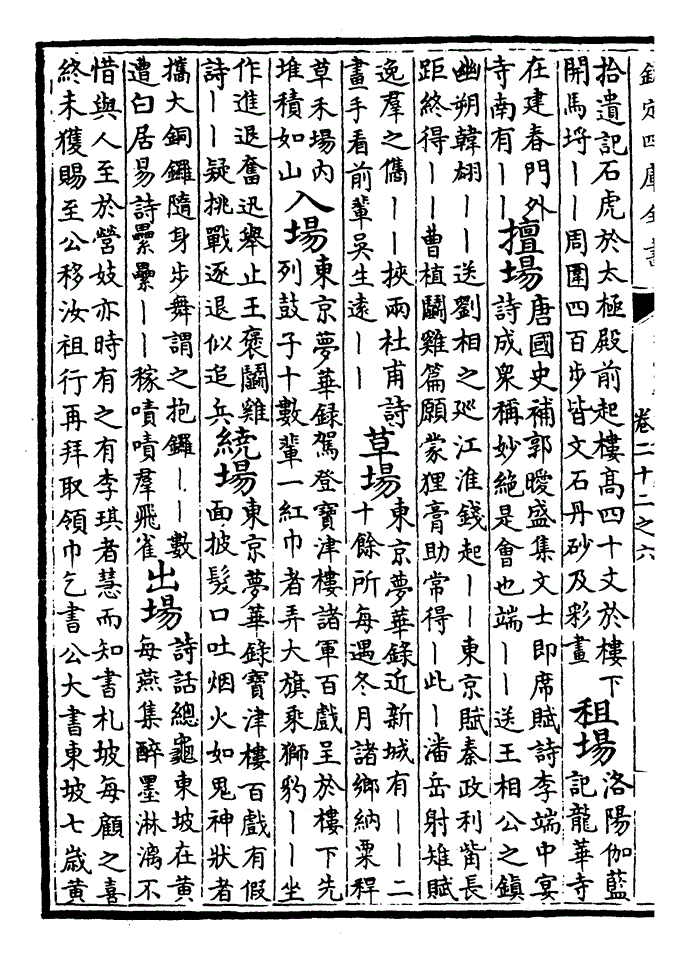 欽定四庫全書
卷二十二之六
拾遺記石虎於太極殿前起樓髙四十丈於樓下
開馬埒丨丨周圍四百步皆文石丹砂及彩畫
租場
洛陽伽藍
記龍華寺
在建春門外
寺南有丨丨
擅場
唐國史補郭曖盛集文士即席賦詩李端中宴
詩成衆稱妙絶是會也端丨丨送王相公之鎮
幽朔韓翃丨丨送劉相之廵江淮錢起丨丨東京賦秦政利觜長
距終得丨丨曹植鬭雞篇願蒙狸膏助常得丨此丨潘岳射雉賦
逸羣之儁丨丨挾兩杜甫詩
畫手看前輩吳生遠丨丨
草場
東京夢華録近新城有丨丨二
十餘所每遇冬月諸鄉納粟稈
草禾場内
堆積如山
入場
東京夢華録駕登寶津樓諸軍百戲呈於樓下先
列鼓子十數輩一紅巾者弄大旗乘獅豹丨丨坐
作進退奮迅舉止王褒鬭雞
詩丨丨疑挑戰逐退似追兵
繞場
東京夢華録寶津樓百戲有假
面披髮口吐烟火如鬼神狀者
攜大銅鑼隨身步舞謂之抱鑼丨丨數
遭白居易詩纍纍丨丨稼嘖嘖羣飛雀
出場
詩話總龜東坡在黄
每燕集醉墨淋漓不
惜與人至於營妓亦時有之有李琪者慧而知書札坡每顧之喜
終未獲賜至公移汝祖行再拜取領巾乞書公大書東坡七歲黄